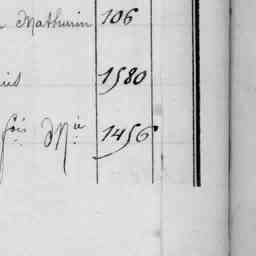 Mathurin 106
1580
fois Mie 1456